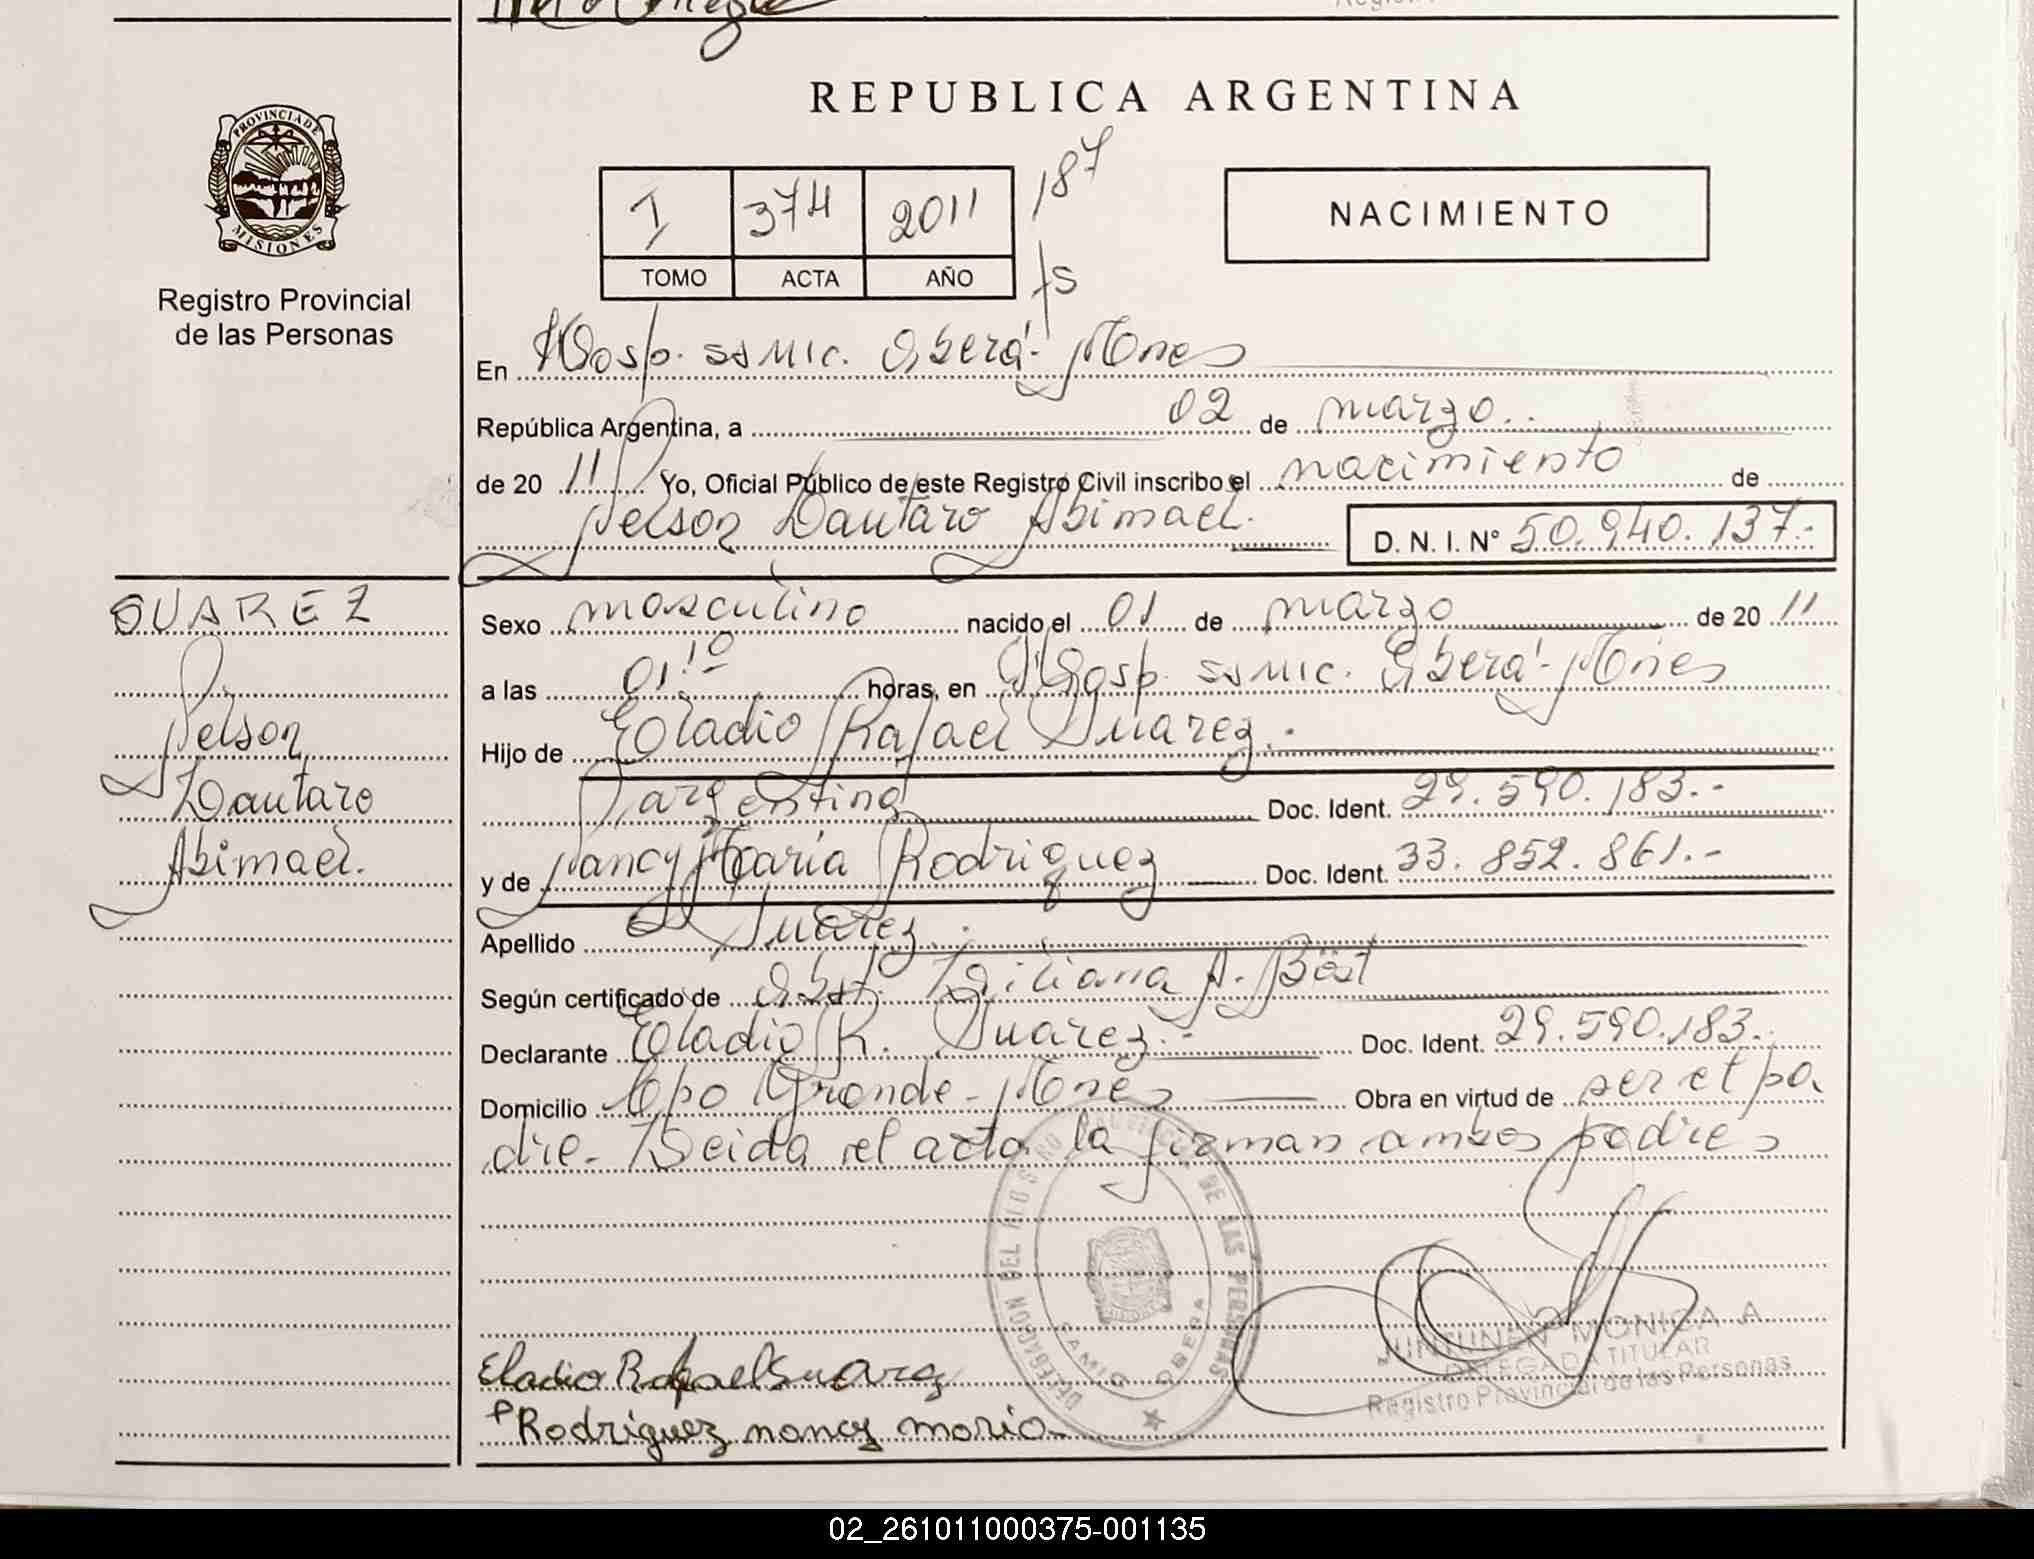 REPUBLICA ARGENTINA
PROVINCIA DE
MISIONES
Registro Provincial
de las Personas
I 374 2011 187
TOMO ACTA AÑO fs
NACIMIENTO
En Hosp. SAMIC. Oberá - Mnes
República Argentina, a 02 de marzo..
de 20 11 Yo, Oficial Público de este Registro Civil inscribo el nacimiento de
Nelson Lautaro Abimael.
D. N. I. N° 50.940.137.-
SUAREZ
Nelson
Lautaro
Abimael.
Sexo masculino nacido el 01 de marzo de 20 11
a las 01:10 horas, en Hosp. SAMIC. Oberá - Mnes
Hijo de Eladio Rafael Suarez.-
argentino Doc. Ident. 29.590.183.-
y de Nancy María Rodriguez Doc. Ident. 33.852.861.-
Apellido Suarez.
Según certificado de Obst. Liliana A. Böst
Declarante Eladio R. Suarez.- Doc. Ident. 29.590.183.
Domicilio Cpo Grande - Mnes Obra en virtud de ser el pa
dre. Leida el acta la firman ambos padres
DELEGACION DEL REGISTRO PROVINCIAL DE LAS PERSONAS
SAMIC OBERA
JUNTUNEN MONICA A
DELEGADA TITULAR
Registro Provincial de las Personas
Eladio Rafael Suarez
Rodriguez nancy maria
02_261011000375-001135